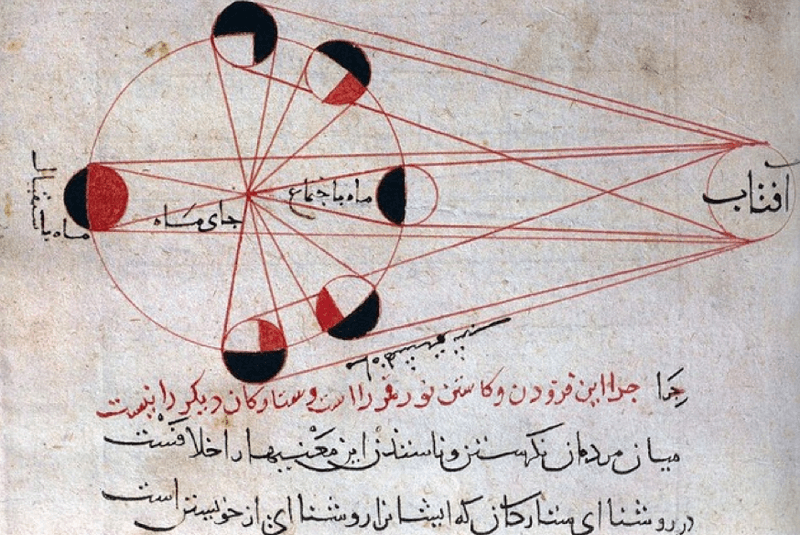 آفتاب
ماه باجتماع
جای ماه
ماه باستقبال
چرا چرا این فزودن و کاستن نور قمر را است و ستارگان دیگر را نیست
میان مردمان نگرستن و ناستدن این معنیها را خلافست
در روشنا ای ستارگان که ایشانرا روشنا ای از خویشتن است